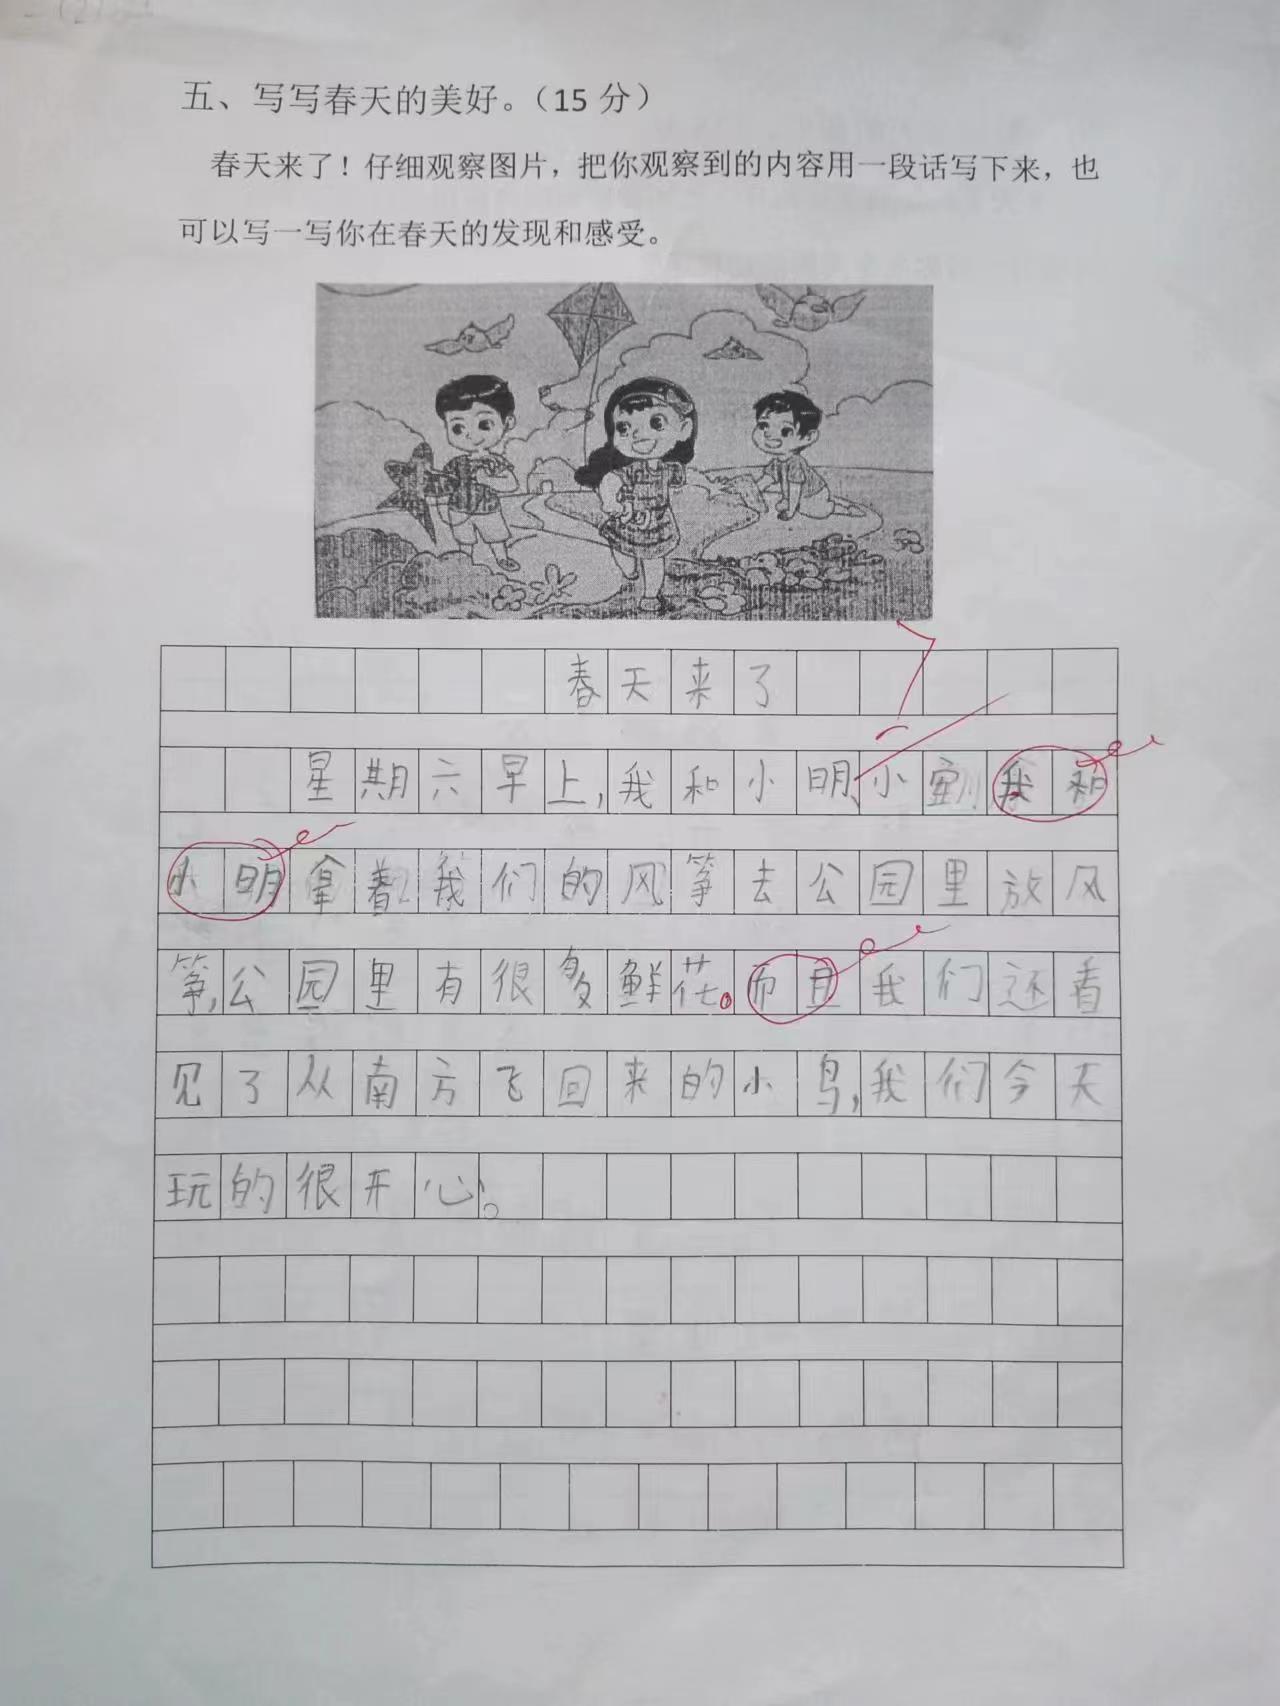 五、写写春天的美好。（15 分）
春天来了！仔细观察图片，把你观察到的内容用一段话写下来，也
可以写一写你在春天的发现和感受。
春天来了
星期六早上，我和小明、小刚我和
小明拿着我们的风筝去公园里放风
筝，公园里有很多鲜花。而且我们还看
见了从南方飞回来的小鸟，我们今天
玩的很开心。